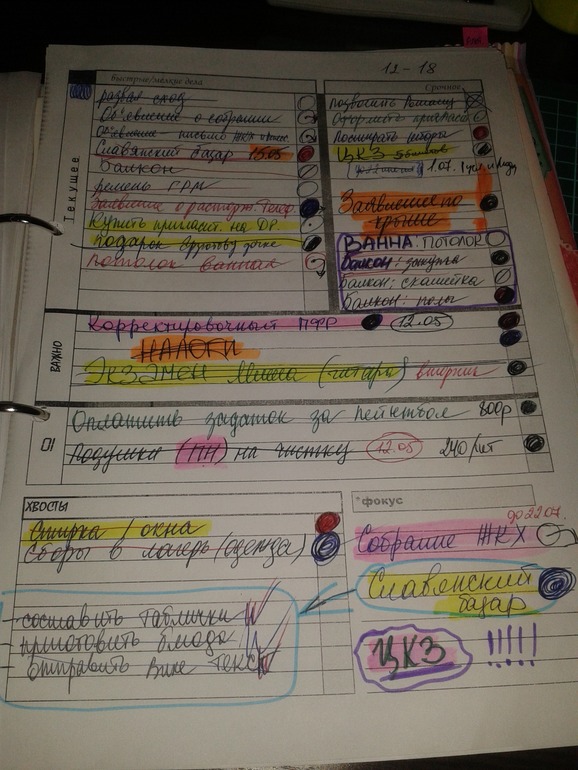 12-18
быстрые/мелкие дела
Срочно
Текущее
развал сход
Объявление о собрании
Объявление письмо ЖКХ
Славянский базар 15.05
Балкон
ремень ГРМ
Заявление о расторж. Телеф.
Купить пригласит. на ДР
Подарок другову дочке
Потолок ванная
позвонить Роману
Оформить пригласит
Постирать шторы
ЦКЗ
1.07.
Заявление по
кроше
ВАННА: ПОТОЛОК
Балкон:
Балкон: скамейка
Балкон: полы
ВАЖНО
Корректировочный ПФР 12.05
НАЛОГИ
Экзамен Миша (гитара) вторник
Оплатить задаток за пейнтбол 800р
Подушки (ПН) на чистку 12.05 240/шт
ХВОСТЫ
Стирка / окна
Сборы в лагерь (одежда)
- составить таблички
- приготовить блюда
- отправить Вике текст
*фокус
до 22.07.
Собрание ЖКХ
Славянский
базар
ЦКЗ !!!!!